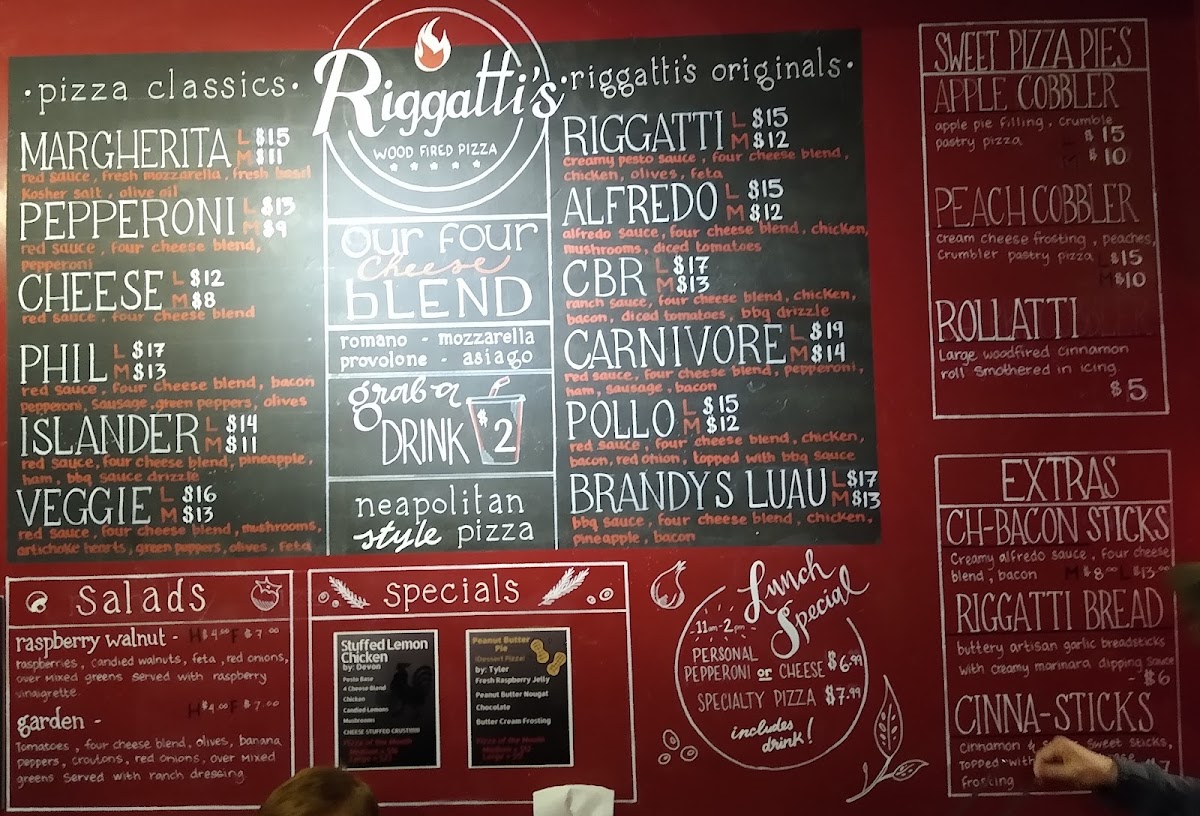 ·pizza classics·
MARGHERITA L $15
M $11
red sauce, fresh mozzarella, fresh basil
Kosher salt, olive oil
PEPPERONI L $13
M $9
red sauce, four cheese blend,
pepperoni
CHEESE L $12
M $8
red sauce, four cheese blend
PHIL L $17
M $13
red sauce, four cheese blend, bacon
Pepperoni, Sausage, green peppers, olives
ISLANDER L $14
M $11
red sauce, four cheese blend, pineapple,
ham, bbq sauce drizzle
VEGGIE L $16
M $13
red sauce, four cheese blend, mushrooms,
artichoke hearts, green peppers, olives, feta
Riggatti's
WOOD FIRED PIZZA
our four
cheese
bLEND
romano - mozzarella
provolone - asiago
grab a
DRINK $2
neapolitan
style pizza
·riggatti's originals·
RIGGATTI L $15
M $12
creamy pesto sauce, four cheese blend,
chicken, olives, feta
ALFREDO L $15
M $12
alfredo sauce, four cheese blend, chicken,
mushrooms, diced tomatoes
CBR L $17
M $13
ranch sauce, four cheese blend, chicken,
bacon, diced tomatoes, bbq drizzle
CARNIVORE L $19
M $14
red sauce, four cheese blend, pepperoni,
ham, sausage, bacon
POLLO L $15
M $12
red sauce, four cheese blend, chicken,
bacon, red onion, topped with bbq sauce
BRANDYS LUAU L $17
M $13
bbq sauce, four cheese blend, chicken,
pineapple, bacon
SWEET PIZZA PIES
APPLE COBBLER
apple pie filling, crumble
pastry pizza L $15
M $10
PEACH COBBLER
cream cheese frosting, peaches,
Crumbler pastry pizza L $15
M $10
ROLLATTI
Large woodfired cinnamon
roll smothered in icing.
$5
EXTRAS
CH-BACON STICKS
Creamy alfredo sauce, four cheese
blend, bacon M $8.00 L $13.00
RIGGATTI BREAD
buttery artisan garlic breadsticks
with creamy marinara dipping sauce
- $6
CINNA-STICKS
Cinnamon & sweet sticks,
Topped with
frosting
salads
raspberry walnut - H $4.00 F $7.00
raspberries, candied walnuts, feta, red onions,
over mixed greens served with raspberry
vinaigrette.
garden - H $4.00 F $7.00
Tomatoes, four cheese blend, olives, banana
peppers, croutons, red onions, over mixed
greens served with ranch dressing
specials
Stuffed Lemon
Chicken
by: Devon
Pesto Base
4 Cheese Blend
Chicken
Candied Lemons
Mushrooms
CHEESE STUFFED CRUST!!!!!
Pizza of the Month
Peanut Butter
Pie
(Dessert Pizza)
by: Tyler
Fresh Raspberry Jelly
Peanut Butter Nougat
Chocolate
Butter Cream Frosting
Pizza of the Month
Lunch
Special
-11am-2pm-
PERSONAL
PEPPERONI or CHEESE $6.99
SPECIALTY PIZZA $7.99
includes
drink!